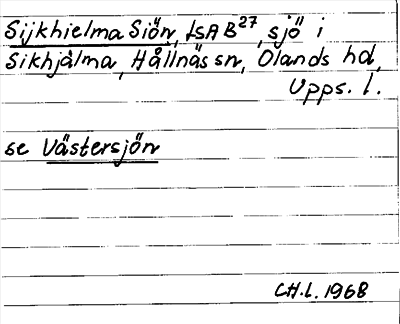 Sijkhielma Siön, LSA B27, sjö i
Sikhjälma, Hållnäs sn, Olands hd,
Upps. l.
se Västersjön
CH.L. 1968